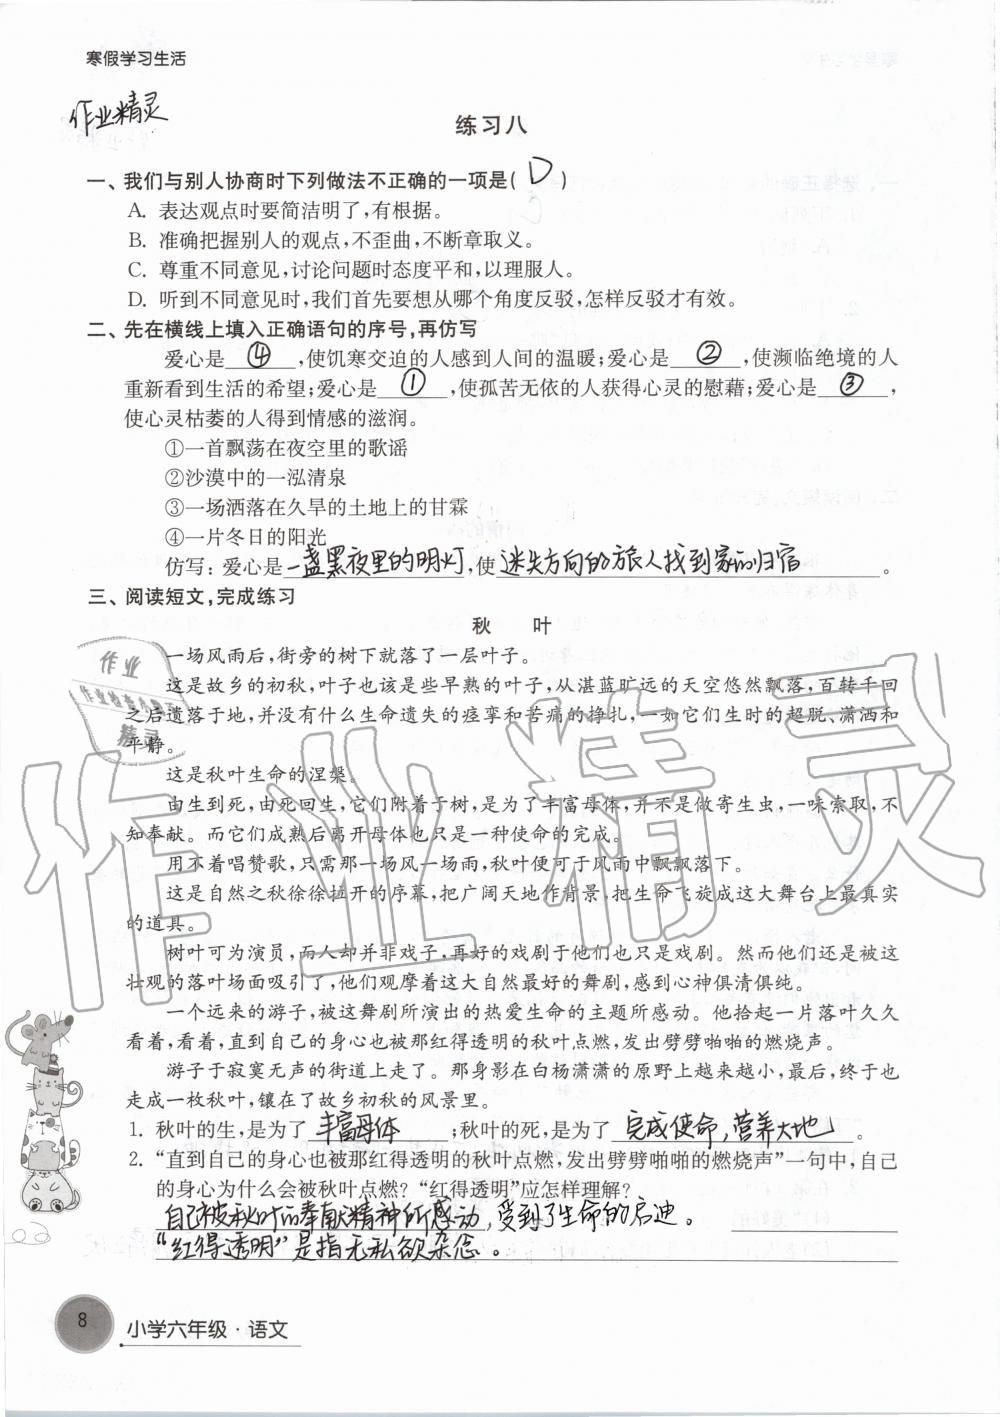 寒假学习生活
作业精灵
练习八
一、我们与别人协商时下列做法不正确的一项是( D )
A. 表达观点时要简洁明了,有根据。
B. 准确把握别人的观点,不歪曲,不断章取义。
C. 尊重不同意见,讨论问题时态度平和,以理服人。
D. 听到不同意见时,我们首先要想从哪个角度反驳,怎样反驳才有效。
二、先在横线上填入正确语句的序号,再仿写
爱心是 ④ ,使饥寒交迫的人感到人间的温暖;爱心是 ② ,使濒临绝境的人
重新看到生活的希望;爱心是 ① ,使孤苦无依的人获得心灵的慰藉;爱心是 ③ ,
使心灵枯萎的人得到情感的滋润。
①一首飘荡在夜空里的歌谣
②沙漠中的一泓清泉
③一场洒落在久旱的土地上的甘霖
④一片冬日的阳光
仿写:爱心是一盏黑夜里的明灯,使迷失方向的旅人找到家的归宿。
三、阅读短文,完成练习
秋 叶
一场风雨后,街旁的树下就落了一层叶子。
这是故乡的初秋,叶子也该是些早熟的叶子,从湛蓝旷远的天空悠然飘落,百转千回
之后遗落于地,并没有什么生命遗失的痉挛和苦痛的挣扎,一如它们生时的超脱、潇洒和
平静。
这是秋叶生命的涅槃。
由生到死,由死回生,它们附着于树,是为了丰富母体,并不是做寄生虫,一味索取,不
知奉献。而它们成熟后离开母体也只是一种使命的完成。
用不着唱赞歌,只需那一场风一场雨,秋叶便可于风雨中飘飘落下。
这是自然之秋徐徐拉开的序幕,把广阔天地作背景,把生命飞旋成这大舞台上最真实
的道具。
树叶可为演员,而人却并非戏子,再好的戏剧于他们也只是戏剧。然而他们还是被这
壮观的落叶场面吸引了,他们观摩着这大自然最好的舞剧,感到心神俱清俱纯。
一个远来的游子,被这舞剧所演出的热爱生命的主题所感动。他拾起一片落叶久久
看着,看着,直到自己的身心也被那红得透明的秋叶点燃,发出劈劈啪啪的燃烧声。
游子于寂寞无声的街道上走了。那身影在白杨潇潇的原野上越来越小,最后,终于也
走成一枚秋叶,镶在了故乡初秋的风景里。
1. 秋叶的生,是为了 丰富母体 ;秋叶的死,是为了 完成使命,营养大地 。
2. “直到自己的身心也被那红得透明的秋叶点燃,发出劈劈啪啪的燃烧声”一句中,自己
的身心为什么会被秋叶点燃?“红得透明”应怎样理解?
自己被秋叶的奉献精神所感动,受到了生命的启迪。
“红得透明”是指无私欲杂念。
8
小学六年级·语文
作业
作业检查小帮手
精灵
作业精灵